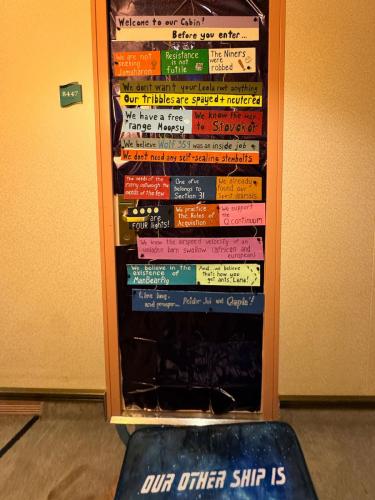 Welcome to our Cabin!
Before you enter...
8447
We are not
seeking
Jamaharon
Resistance
is not
futile
The Niners
were
robbed
We don't want your Leola root anything
Our tribbles are spayed + neutered
We have a free
range Moopsy
We know the way
to Stovokor
We believe Wolf 359 was an inside job
We don't need any self-sealing stembolts
The needs of the
many outweigh the
needs of the few
One of us
belongs to
Section 31
We already
found our
Spirit animals
There are
FOUR lights!
We practice
the Rules of
Acquisition
We support
the
Q continuum
We know the airspeed velocity of an
unladen barn swallow (african and
european)
We believe in the
existence of
ManBearPig
And... we believe
that's how you
get ants, Lana!
Live long,
and prosper...
Peldor Joi and Qapla'!
OUR OTHER SHIP IS